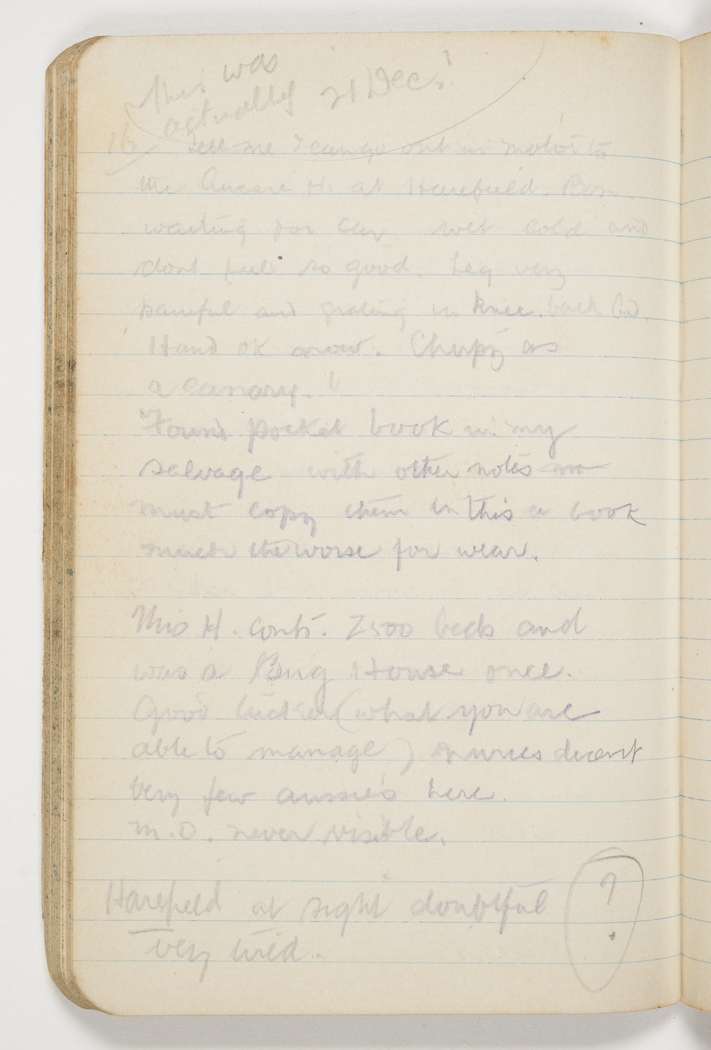 This was
actually 21 Dec!
16 tell me I can go out in motor to
the Aussie H. at Harefield. Am
waiting for car. wet cold and
dont feel so good. Leg very
painful and grating in knee. back bad.
Hand ok now. Chirpy as
a canary.
Found pocket book in my
salvage with other notes
must copy them in this a book
much the worse for wear.
This H. conts. 2500 beds and
was a Bug House once.
Good tucker (what you are
able to manage) nurses decent
Very few aussies here.
M.O. never visible.
Harefield at sight doubtful ?
very tired.